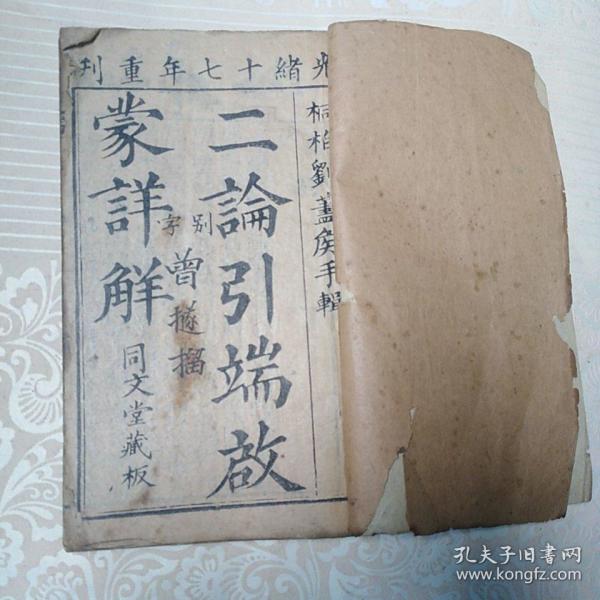 光緒十七年重刊
桐柏劉蓋矦手輯
二論引端啟
蒙詳解
别字
曾
同文堂藏板
孔夫子旧书网
www.kongfz.com